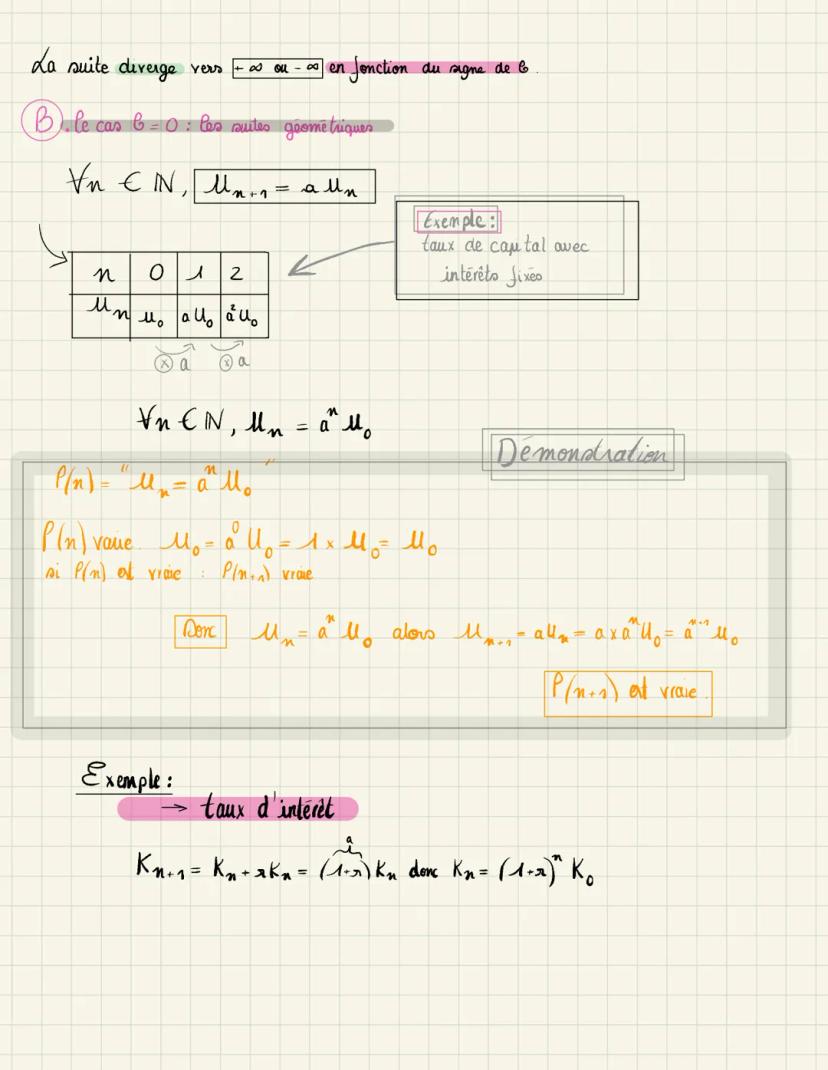 La suite diverge vers + ∞ ou - ∞ en fonction du signe de b.
B. le cas b = 0 : les suites géométriques
∀n ∈ ℕ, Uₙ₊₁ = a Uₙ
Exemple :
taux de capital avec
intérêts fixés
n 0 1 2
Uₙ U₀ aU₀ a²U₀
⊗ a ⊗ a
∀n ∈ ℕ, Uₙ = aⁿ U₀
Démonstration
P(n) = "Uₙ = aⁿ U₀"
P(n) vraie. U₀ = a⁰ U₀ = 1 × U₀ = U₀
si P(n) est vraie : P(n+1) vraie
Donc Uₙ = aⁿ U₀ alors Uₙ₊₁ = aUₙ = a x aⁿU₀ = aⁿ⁺¹ U₀
P(n+1) est vraie.
Exemple :
→ taux d'intérêt
a
Kₙ₊₁ = Kₙ + rKₙ = (1+r)Kₙ donc Kₙ = (1+r)ⁿ K₀